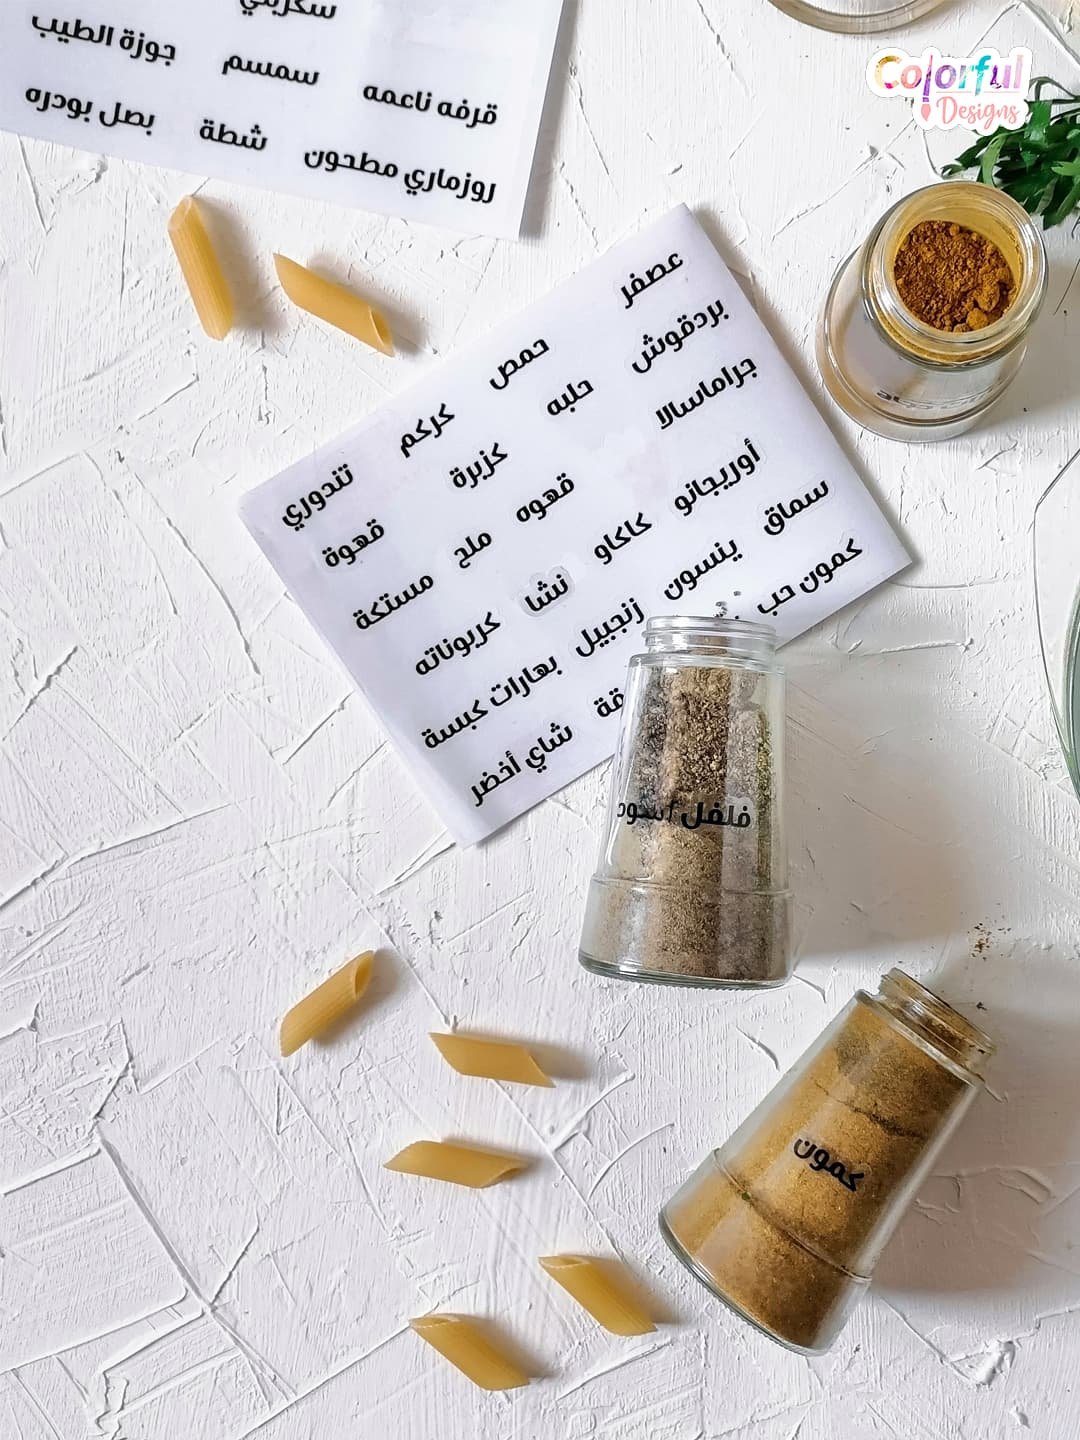 Colorful
Designs
قرفه ناعمه سمسم جوزة الطيب
روزماري مطحون شطة بصل بودره
عصفر حمص كركم تندوري
بردقوش حلبه كزبرة قهوة
جراماسالا قهوه ملح مستكة
أوريجانو كاكاو نشا كربوناته
سماق ينسون زنجبيل بهارات كبسة
كمون حب شاي أخضر
فلفل أسود
كمون